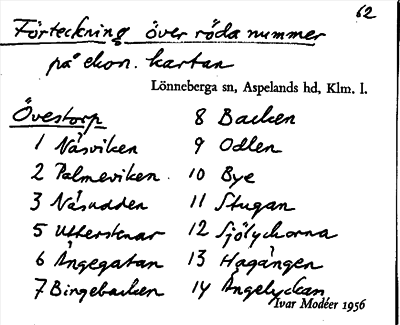 62
Förteckning över röda nummer
på ekon. kartan
Lönneberga sn, Aspelands hd, Klm. l.
Övestorp
1 Näsviken
2 Palmeviken
3 Näsudden
5 Utterskär
6 Ängegatan
7 Bingebacken
8 Backen
9 Odlen
10 Bye
11 Stugan
12 Sjölyckorna
13 Hagängen
14 Ängelyckan
Ivar Modéer 1956